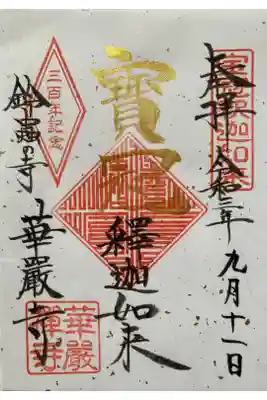 奉拝 令和三年九月十一日
寶
釋迦如来
三百年記念
鈴蟲の寺
華嚴寺
華嚴
禪寺